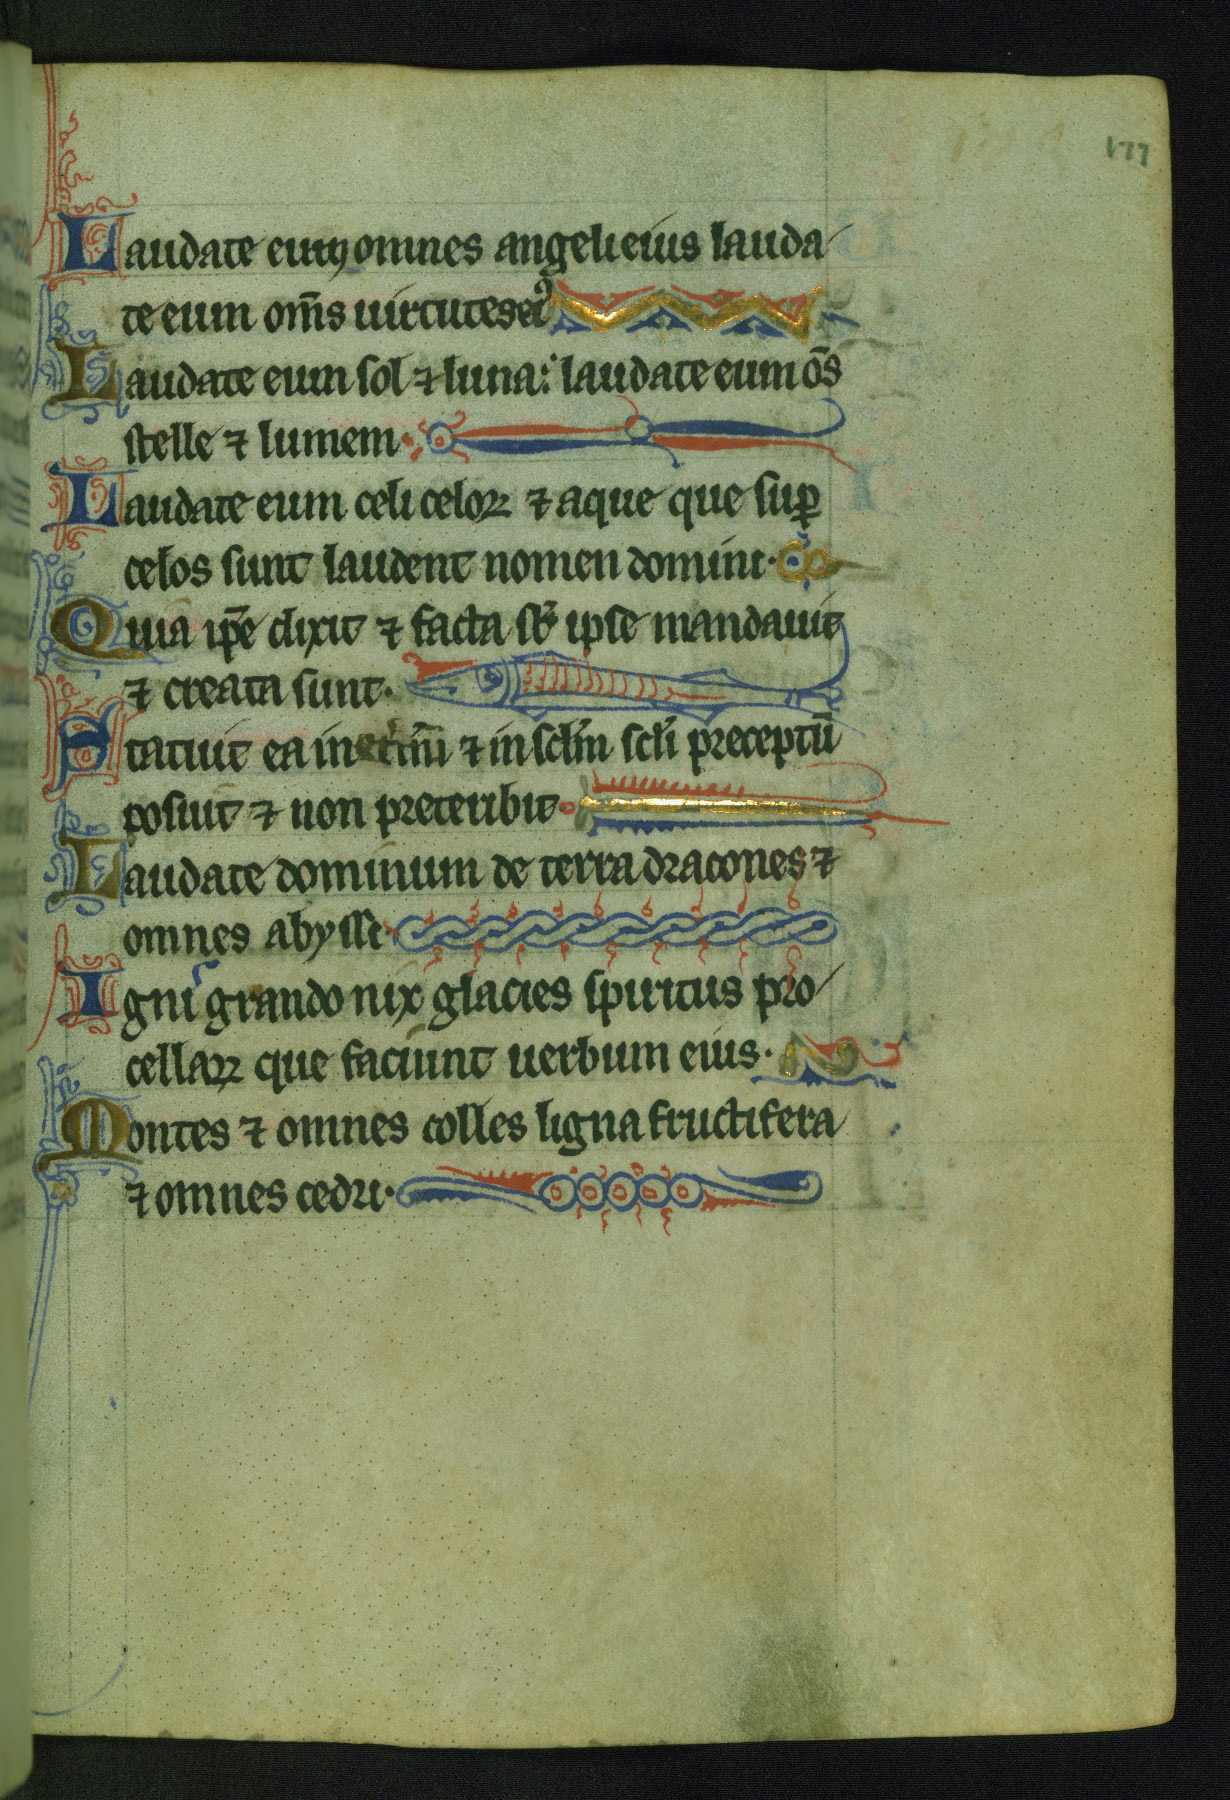 177
Laudate eum omnes angeli eius lauda
te eum om̄s uirtutes ei⁹
Laudate eum sol ⁊ luna: laudate eum om̄s
stelle ⁊ lumem·
Laudate eum celi celoꝝ ⁊ aque que suꝑ
celos sunt laudent nomen domini·
Quia ip̄e dixit ⁊ facta st̄ ipse mandauit
⁊ creata sunt·
Statuit ea in et̄nū ⁊ in scl̄m scl̄i preceptū
posuit ⁊ non preteribit·
Laudate dominum de terra dracones ⁊
omnes abyssi·
Igni grando nix glacies spiritus pro
cellaꝝ que faciunt uerbum eius·
Montes ⁊ omnes colles ligna fructifera
⁊ omnes cedri·